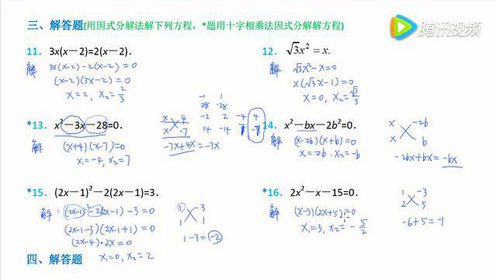 腾讯视频
三、解答题(用因式分解法解下列方程，*题用十字相乘法因式分解解方程)
11. 3x(x－2)=2(x－2).
解 3x(x-2)-2(x-2)=0
(x-2)(3x-2)=0
x₁=2, x₂=2/3
12. √3x²=x.
解 √3x²-x=0
x(√3x-1)=0
x₁=0, x₂=√3/3
*13. x²－3x－28=0.
解 (x+4)(x-7)=0
x₁=-4, x₂=7
x 4
x -7
-7x+4x=-3x
-1 1
28 -28
-2 2 -4 4
14 -14 7 -7
14. x²－bx－2b²=0.
解 (x-2b)(x+b)=0
x₁=2b, x₂=-b
x -2b
x b
-2bx+bx=-bx
*15. (2x－1)²－2(2x－1)=3.
解: (2x-1)²-2(2x-1)-3=0
(2x-1-3)(2x-1+1)=0
(2x-4)·2x=0
x₁=0, x₂=2
1 -3
1 1
1-3=-2
*16. 2x²－x－15=0.
解 (x-3)(2x+5)=0
x₁=3, x₂=-5/2
1 -3
2 5
-6+5=-1
四、解答题